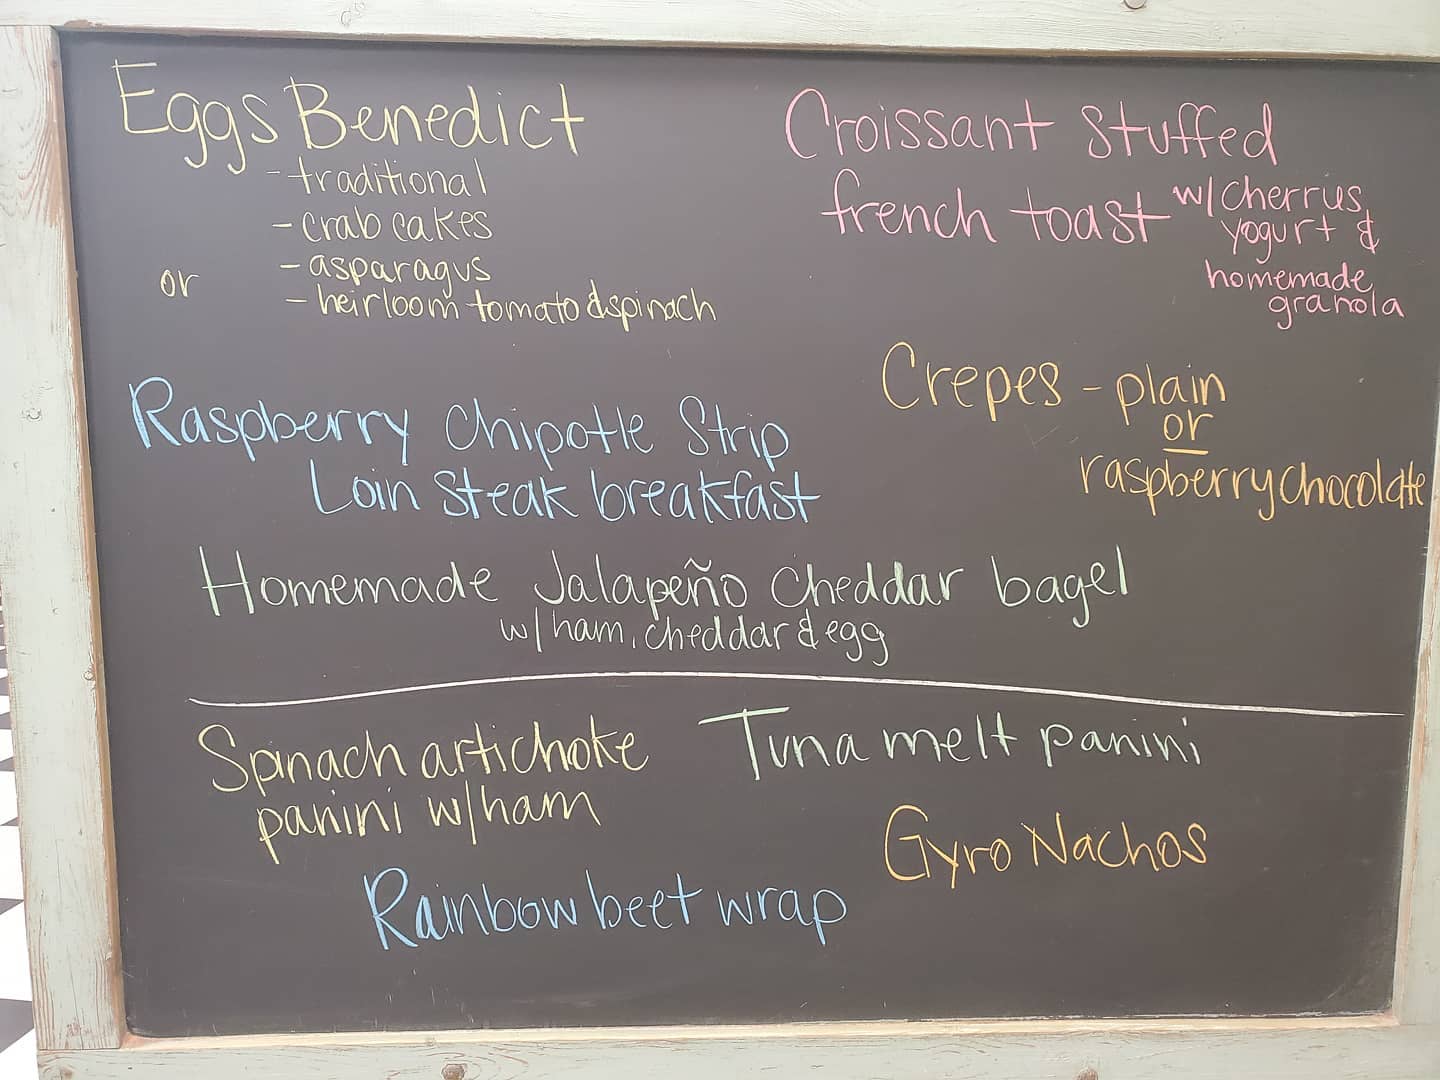 Eggs Benedict
- traditional
- crab cakes
- asparagus
or - heirloom tomato & spinach
Croissant Stuffed
french toast w/cherrus,
yogurt &
homemade
granola
Crepes - plain
or
raspberry chocolate
Raspberry Chipotle Strip
Loin Steak breakfast
Homemade Jalapeño Cheddar bagel
w/ham, cheddar & egg
Spinach artichoke
panini w/ham
Tuna melt panini
Gyro Nachos
Rainbow beet wrap